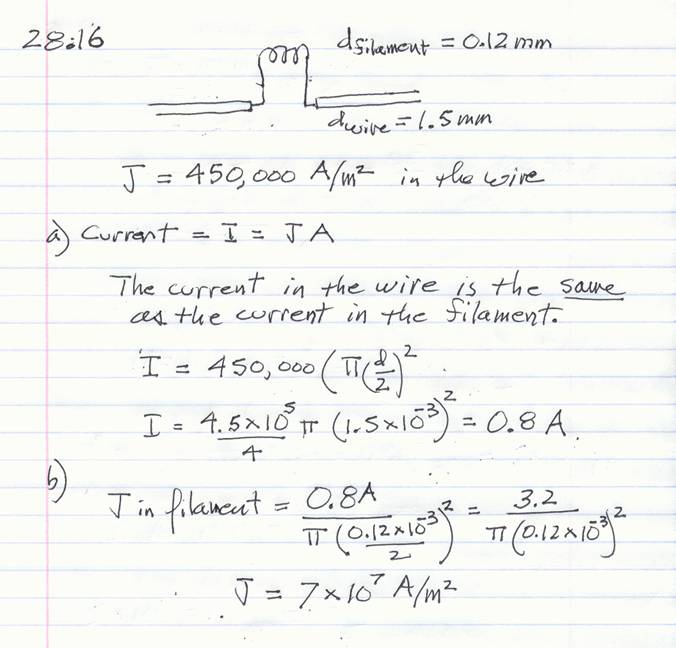 28:16
d filament = 0.12 mm
d wire = 1.5 mm
J = 450,000 A/m² in the wire
a) Current = I = JA
The current in the wire is the same
as the current in the filament.
I = 450,000 (π(d/2)²
I = 4.5×10⁵/4 π (1.5×10⁻³)² = 0.8 A.
b)
J in filament = 0.8A / π(0.12×10⁻³/2)² = 3.2 / π(0.12×10⁻³)²
J = 7×10⁷ A/m²